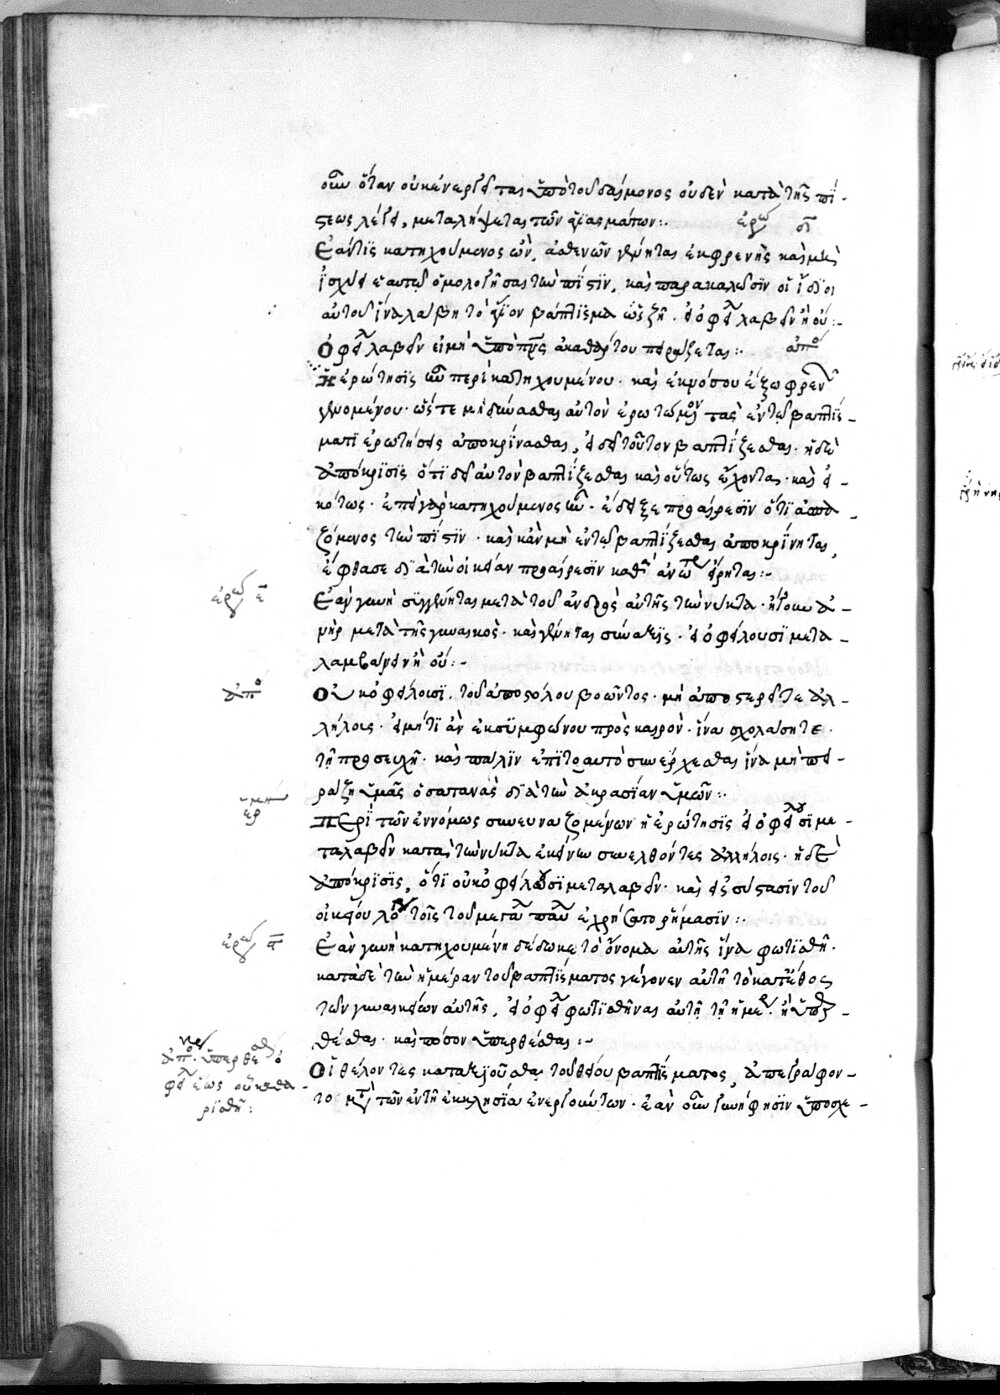 οὖν ὅταν οὐκ ἐνεργεῖται ὑπὸ τοῦ δαίμονος οὐδὲν κατὰ τῆς πί-
στεως λέγει, μεταλήψεται τῶν ἁγιασμάτων:
ἐρώ
Ἐάν τις κατηχούμενος ὢν, ἀσθενῶν γένηται ἐκφρενὴς καὶ μὴ
ἰσχύει ἑαυτῷ ὁμολογῆσαι τὴν πίστιν, καὶ παρακαλοῦσιν οἱ ἴδιοι
αὐτοῦ ἵνα λάβῃ τὸ ἅγιον βάπτισμα ὡς ζῇ. εἰ ὀφείλ λαβεῖν ἢ οὔ:-
Ὀφείλ λαβεῖν εἰ μὴ ὑπὸ πνς ἀκαθάρτου πειράζεται:
ἀπό
Ἡ ἐρώτησις οὖν περὶ κατηχουμένου. καὶ ἐκ νόσου ἔξω φρεν
γενομένου. ὥστε μὴ δύνασθαι αὐτὸν ἐρωτώμενον ταῖς ἐν τῷ βαπτίσ-
ματι ἐρωτήσεις ἀποκρίνασθαι, εἰ δεῖ τοῦτον βαπτίζεσθαι. ἡ δὲ
ἀπόκρισις ὅτι δεῖ αὐτὸν βαπτίζεσθαι καὶ οὕτως ἔχοντα. καὶ εἰ-
κότως. ἐπεὶ γὰρ κατηχούμενος ὢν. ἔδειξε προαίρεσιν ὅτι ἀσπα-
ζόμενος τὴν πίστιν. καὶ κἂν μὴ ἐν τῷ βαπτίζεσθαι ἀποκρίνηται,
ἔφθασε διὰ τὴν οἰκείαν προαίρεσιν
ἐρώ ε
Ἐὰν γυνὴ συγγένηται μετὰ τοῦ ἀνδρὸς αὐτῆς τὴν νύκτα. ἤτουν ἀ-
νὴρ μετὰ τῆς γυναικὸς. καὶ γένηται σύναξις. εἰ ὀφείλουσι μετα-
λαμβάνειν ἢ οὔ:-
ἀπό
Οὐκ ὀφείλουσι. τοῦ ἀποστόλου βοῶντος. μὴ ἀποστερεῖτε ἀλ-
λήλους. εἰ μή τι ἂν ἐκ συμφώνου πρὸς καιρὸν. ἵνα σχολάσητε
τῇ προσευχῇ. καὶ πάλιν ἐπὶ τοαυτὸ συνέρχεσθαι ἵνα μὴ πει-
ράζῃ ὑμᾶς ὁ σατανὰς διὰ τὴν ἀκρασίαν ὑμῶν:
ἑρμη
Περὶ τῶν ἐννόμως συνευναζομένων ἡ ἐρώτησις εἰ ὀφείλουσι με-
ταλαβεῖν κατὰ τὴν νύκτα ἐκείνην συνελθόντες ἀλλήλοις. ἡ δὲ
ἀπόκρισις, ὅτι οὐκ ὀφείλουσι μεταλαβεῖν. καὶ εἰς σύστασιν τοῦ
οἰκείου λόγου τοῖς τοῦ μεγάλ παύλ ἐχρήσατο ῥήμασιν:
ἐρώ
Ἐὰν γυνὴ κατηχουμένη δέδωκε τὸ ὄνομα αὐτῆς ἵνα φωτισθῇ.
κατὰ δὲ τὴν ἡμέραν τοῦ βαπτίσματος γέγονεν αὐτῇ τὸ κατ ἔθος
τῶν γυναικείων αὐτῆς, εἰ ὀφείλ φωτισθῆναι αὐτῇ τῇ ἡμέρ ἢ ὑπερ-
θέσθαι. καὶ πόσον ὑπερθέσθαι:-
ἀπό. ὑπερθέσθαι ὀ
φείλ ἕως οὗ καθα-
ρισθῇ:
Οἱ θέλοντες καταξιοῦσθαι τοῦ θείου βαπτίσματος, ἀπεγράφον-
το μετὰ τῶν ἐν τῇ ἐκκλησία ἐνεργούντων. ἐὰν οὖν γυνή φησιν ὑποσχε-